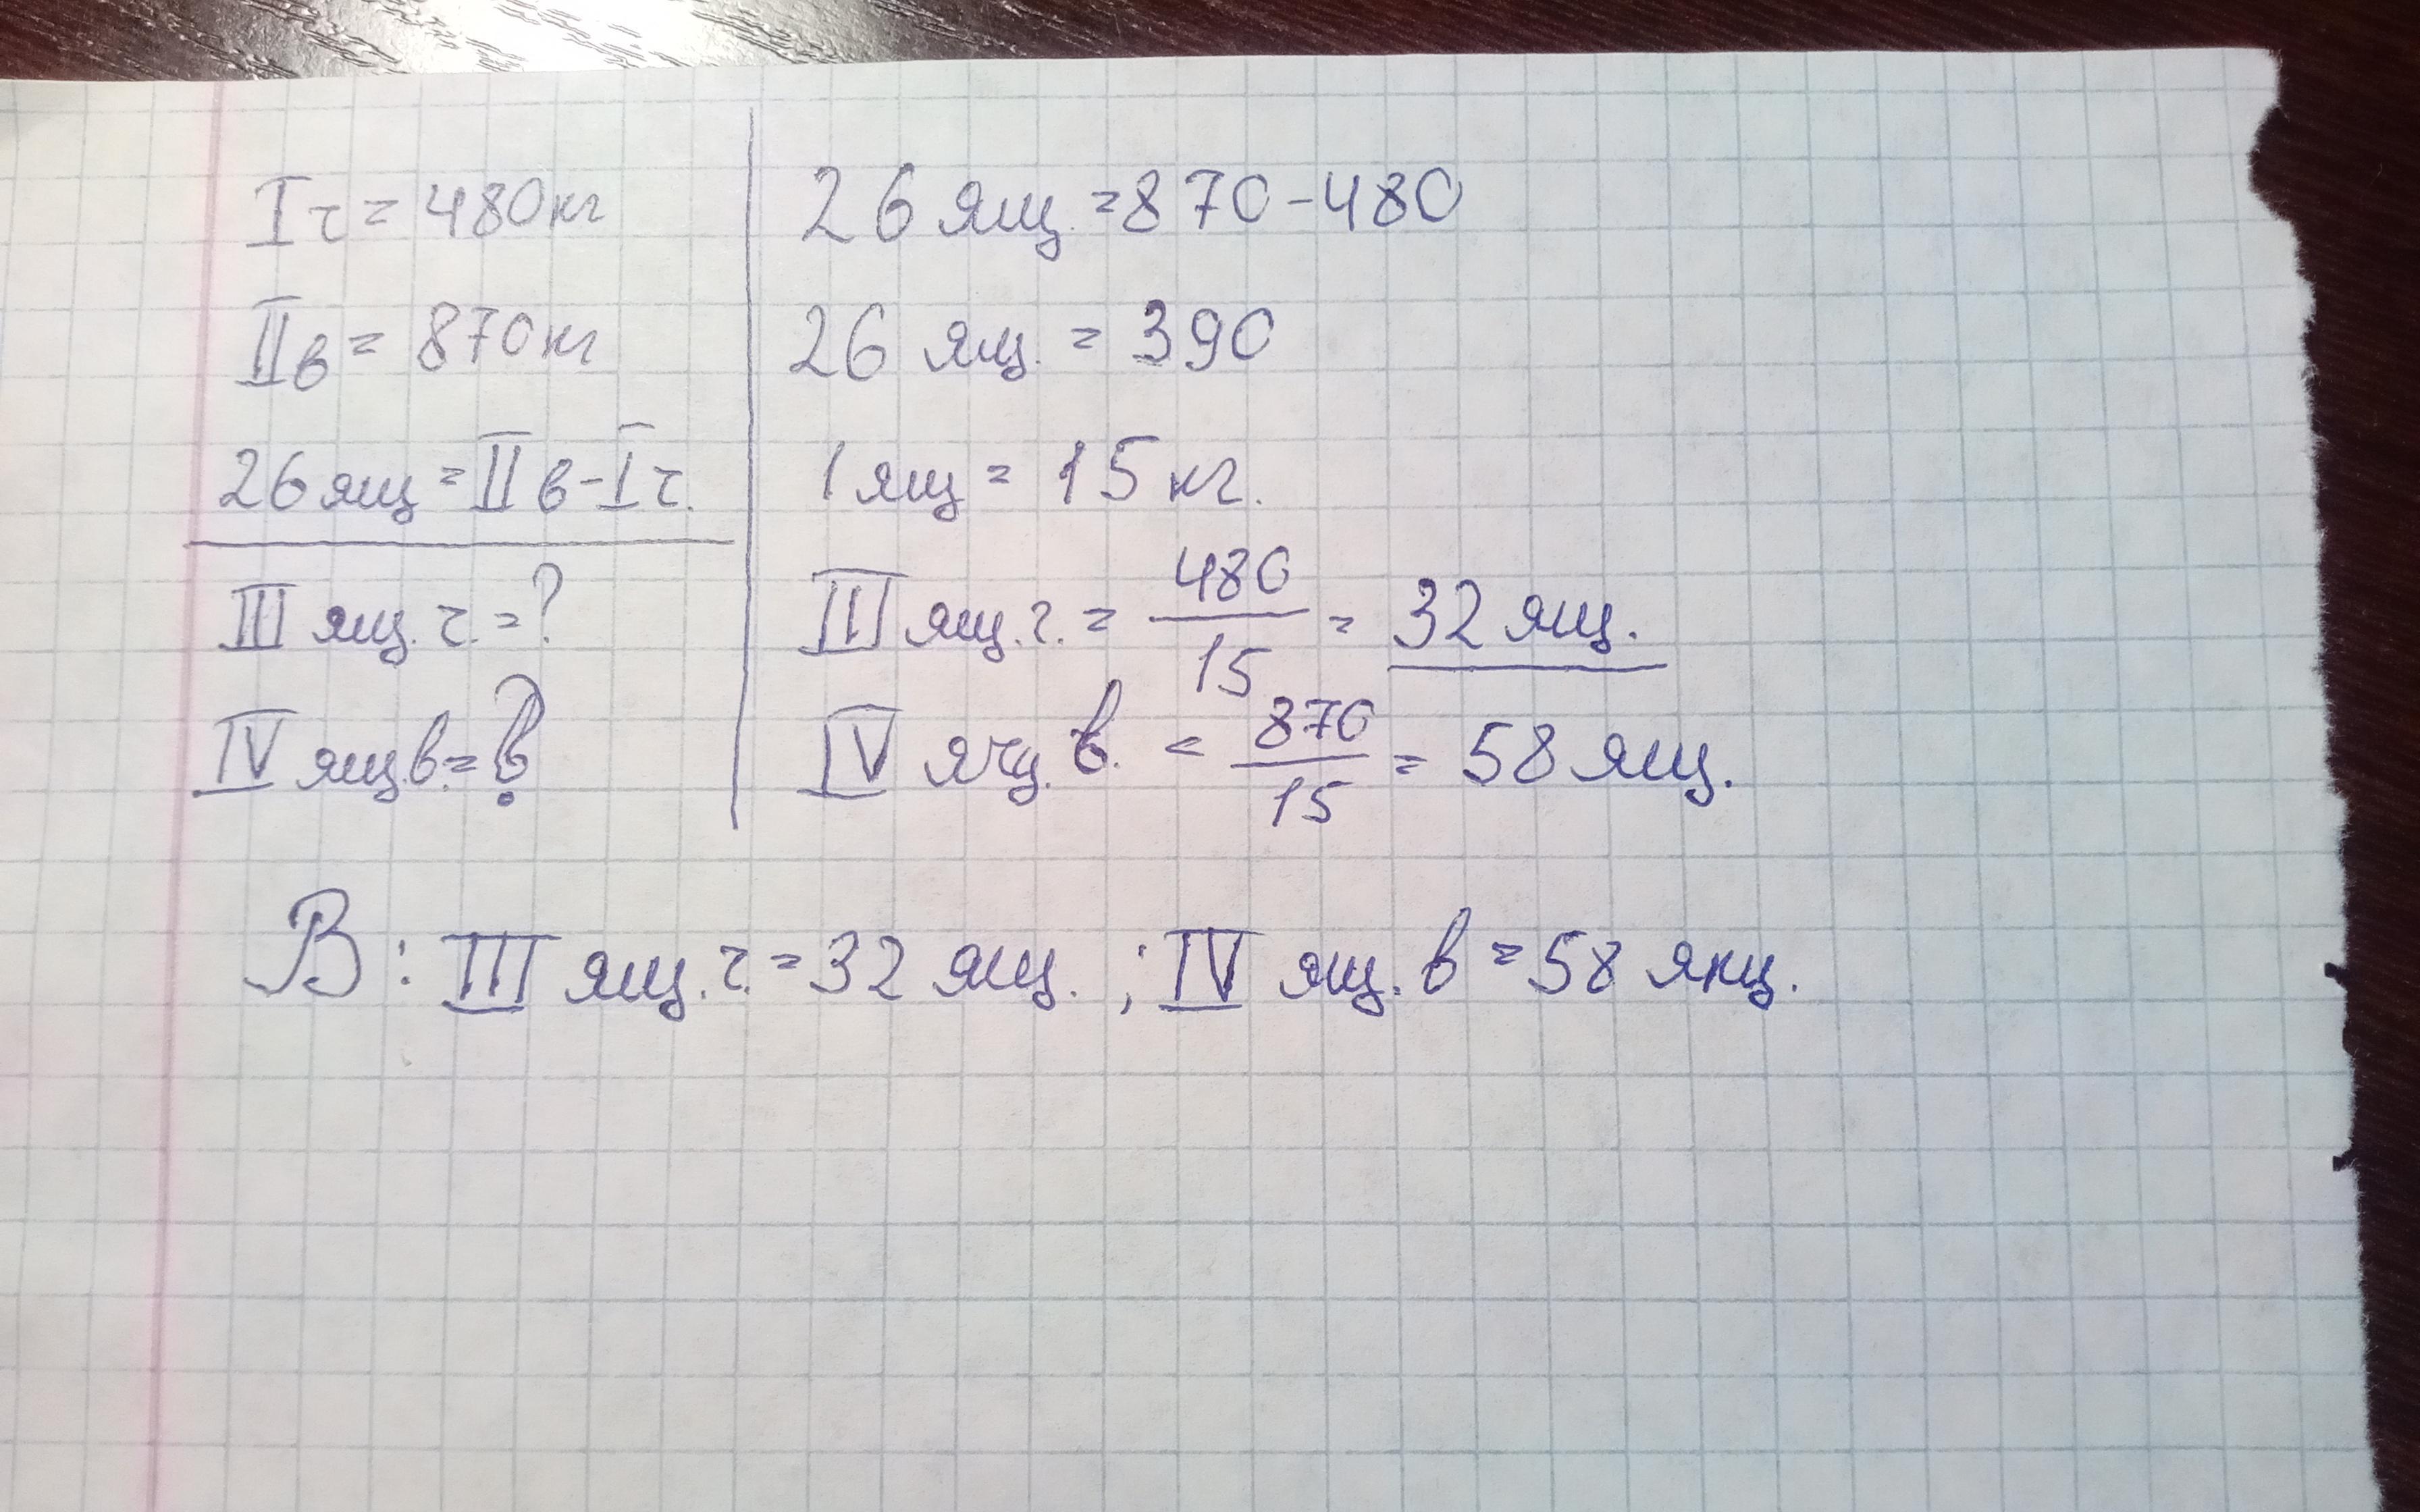 I ч = 480 кг
II в = 870 кг
26 ящ = II в - I ч.
III ящ. ч. = ?
IV ящ в. = ?
26 ящ. = 870 - 480
26 ящ. = 390
1 ящ = 15 кг.
III ящ. ч. = 480/15 = 32 ящ.
IV ящ. в. = 870/15 = 58 ящ.
В: III ящ. ч. = 32 ящ. ; IV ящ. в = 58 ящ.